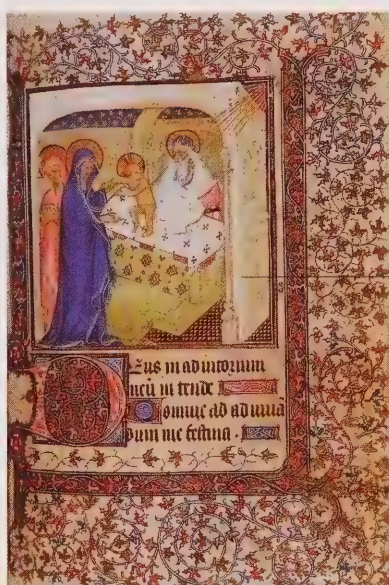 Eus in ad iutorium
meū in tende
Domine ad ad iuuā
dum me festina .